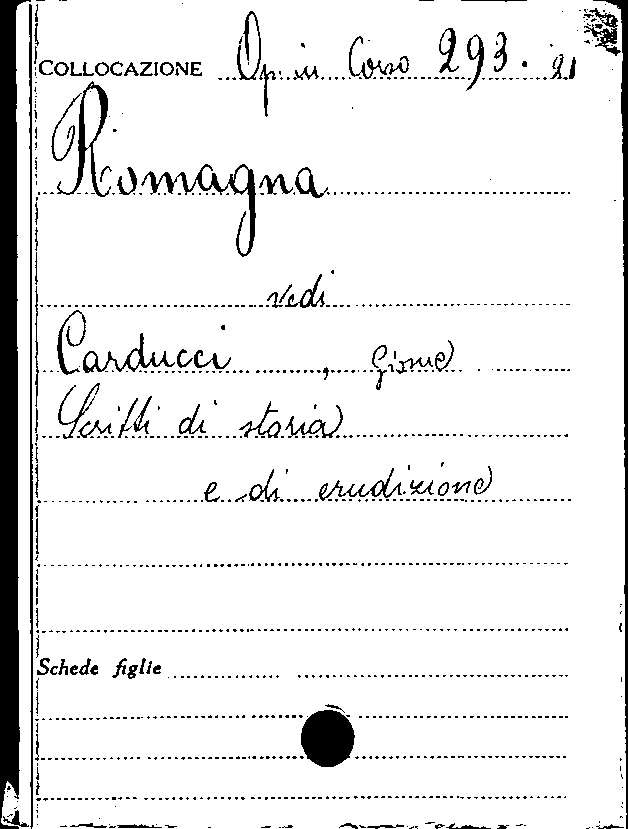 COLLOCAZIONE Op. in Corso 293. 21
Romagna
vedi
Carducci, Giosue
Scritti di storia
e di erudizione
Schede figlie